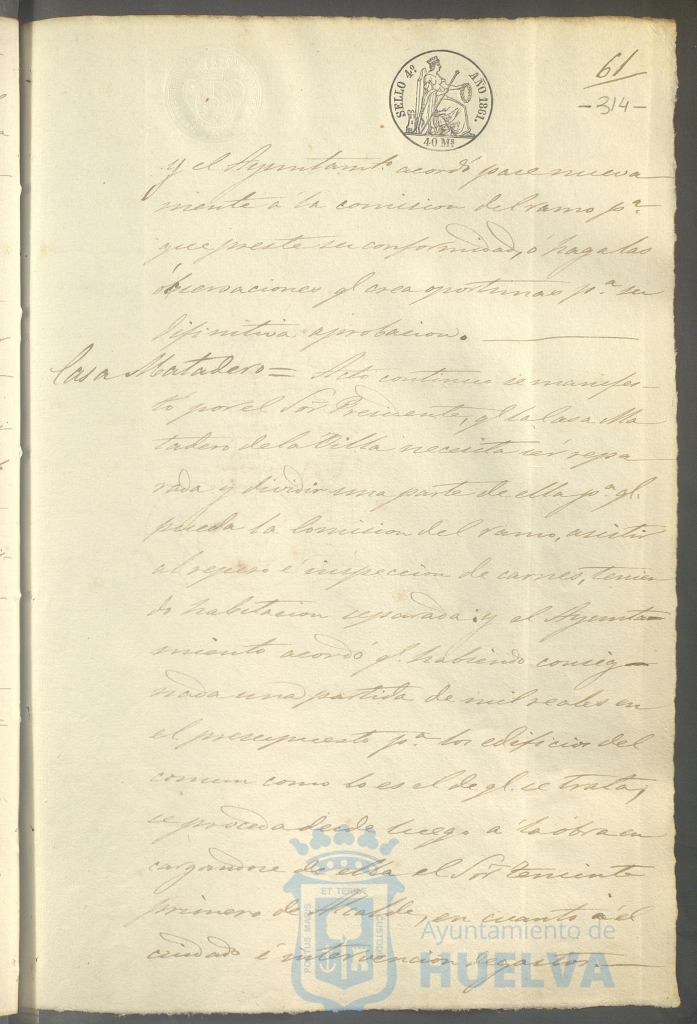 SELLO 4º AÑO 1861.
40 Ms
61
-314-
y el Ayuntamto acordó pase nueva
mente á la comision del ramo pa.
que preste su conformidad, ó haga las
observaciones ql crea oportunas pa. su
difinitiva aprobacion.
Casa Matadero = Acto continuo se manifes-
tó por el Sor Presidente, ql la Casa Ma
tadero de la Villa necesita ser repa
rada y dividir una parte de ella pa. ql.
pueda la Comision del ramo, asistir
al repeso é inspeccion de carnes, tenien
do habitacion separada: y el Ayunta=
miento acordó ql. habiendo consig=
nada una partida de mil reales en
el presupuesto pa. los edificios del
comun como lo es el de ql. se trata,
se proceda desde luego á la obra en
cargandose de ella el Sor Teniente
primero de Alcalde, en cuanto á el
cuidado é intervencion de gastos
PORTUS MARIS ET TERRE CUSTODIA
Ayuntamiento de
HUELVA